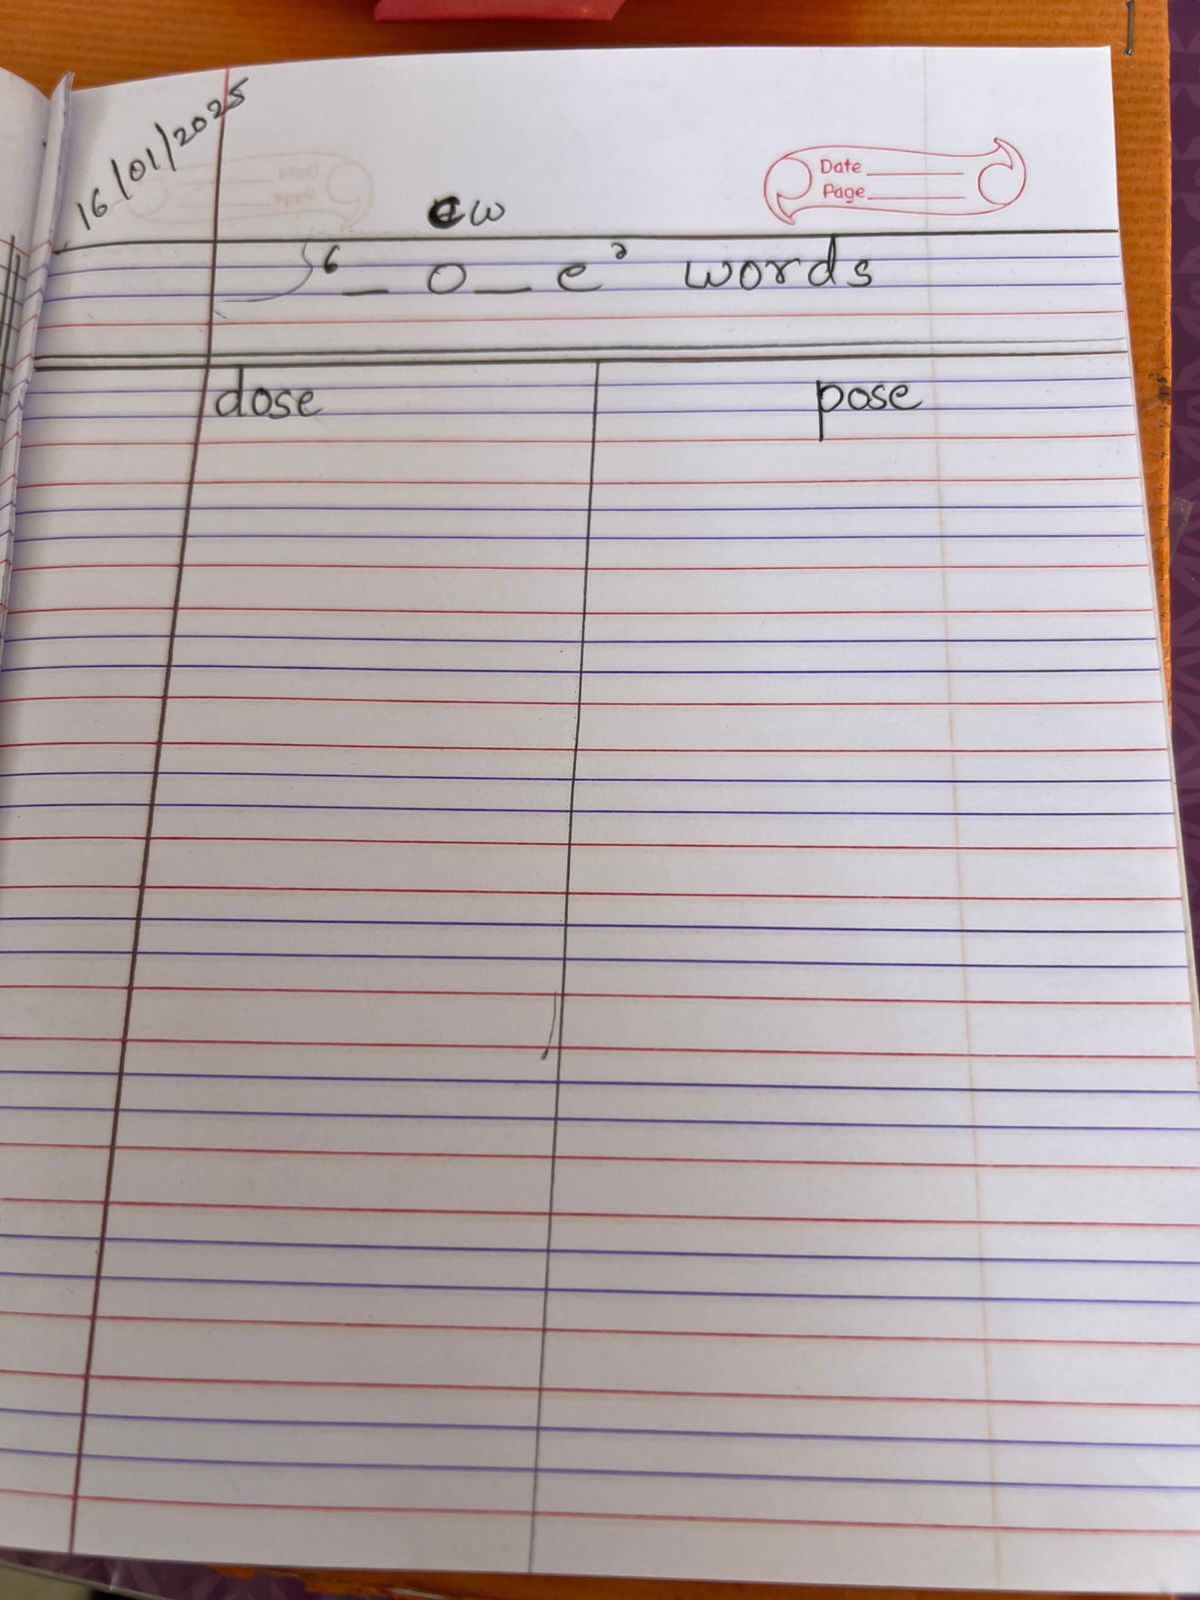 16/01/2025
Date
Page
CW
‘_ o _ e’ words
dose pose